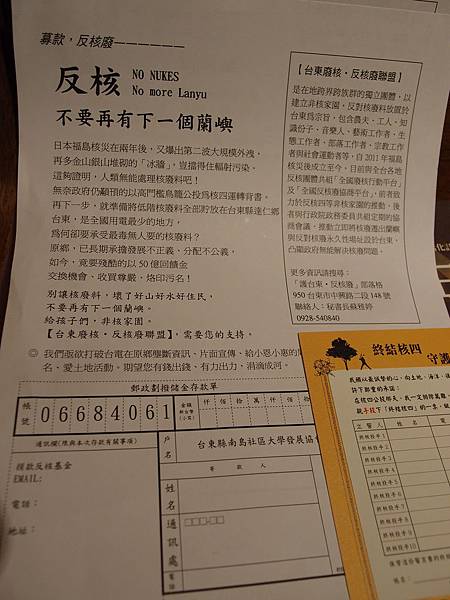 募款，反核廢——————
反核 NO NUKES
No more Lanyu
不要再有下一個蘭嶼
日本福島核災在兩年後，又爆出第二波大規模外洩，
再多金山銀山堆砌的「冰牆」，豈擋得住輻射污染。
這夠證明，人類無能處理核廢料吧！
無奈政府仍顢頇的以高門檻鳥籠公投為核四運轉背書。
再下一步，就準備將低階核廢料全部貯放在台東縣達仁鄉
台東，是全國用電最少的地方，
為何卻要承受最毒無人要的核廢料？
原鄉，已長期承擔發展不正義、分配不公義，
如今，竟要殘酷的以 50 億回饋金
交換機會、收買尊嚴、烙印污名！
別讓核廢料，壞了好山好水好住民，
不要再有下一個蘭嶼。
給孩子們，非核家園。
【台東廢核・反核廢聯盟】，需要您的支持。
◎ 我們亟欲打破台電在原鄉壟斷資訊、片面宣傳、給小恩小惠的
名。愛土地活動，期望您有錢出錢、有力出力，涓滴成河。
【台東廢核・反核廢聯盟】
是在地跨界跨族群的獨立團體，以
建立非核家園，反對核廢料放置於
台東為宗旨，包含農夫、工人、知
識份子、音樂人、藝術工作者、生
態工作者、部落工作者、宗教工作
者與社會運動者等，自 2011 年福島
核災後成立至今，目前與全台各地
反核團體共組「全國廢核行動平台」
及「全國反核廢協商平台」，前者致
力於反核四等非核家園的推動，後
者與行政院政務委員共組定期的協
商會議，推動立即將核廢遷出蘭嶼
與反對核廢永久性場址設於台東，
凸顯政府無能解決核廢問題。
更多資訊請搜尋：
「護台東・反核廢」部落格
950 台東市中興路二段 148 號
聯絡人，秘書長蘇雅婷
0928-540840
郵政劃撥儲金存款單
帳號 06684061
金額 新台幣 (小寫) 仟 佰 拾 萬 仟 佰 拾
通訊欄(限與本次存款有關事項)
捐款反核基金
EMAIL:
電話：
地址：
戶名 台東縣南島社區大學發展協
寄款人
姓名
通訊處
電話
終結核四 守護
我願以最誠摯的心，向土地、海洋、
許下鄭重的承諾：
立誓人 姓名 電
終結核手1
終結核手2
終結核手3
終結核手4
終結核手5
終結核手6
終結核手7
終結核手8
終結核手9
終結核手10
姓名：